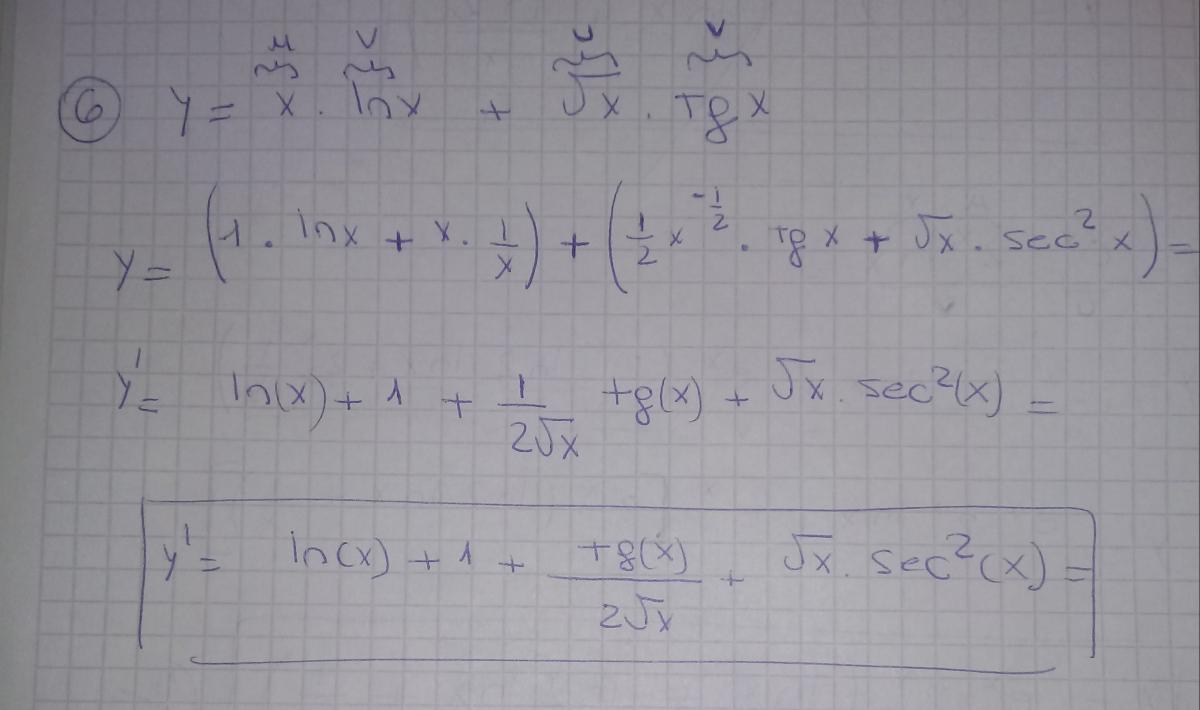 u v u v
⑥ y = x · ln x + √x · tg x
y = (1 · ln x + x · 1/x) + (1/2 x^(-1/2) · tg x + √x · sec² x) =
y' = ln(x) + 1 + 1/(2√x) tg(x) + √x · sec²(x) =
y' = ln(x) + 1 + tg(x)/(2√x) + √x · sec²(x) =